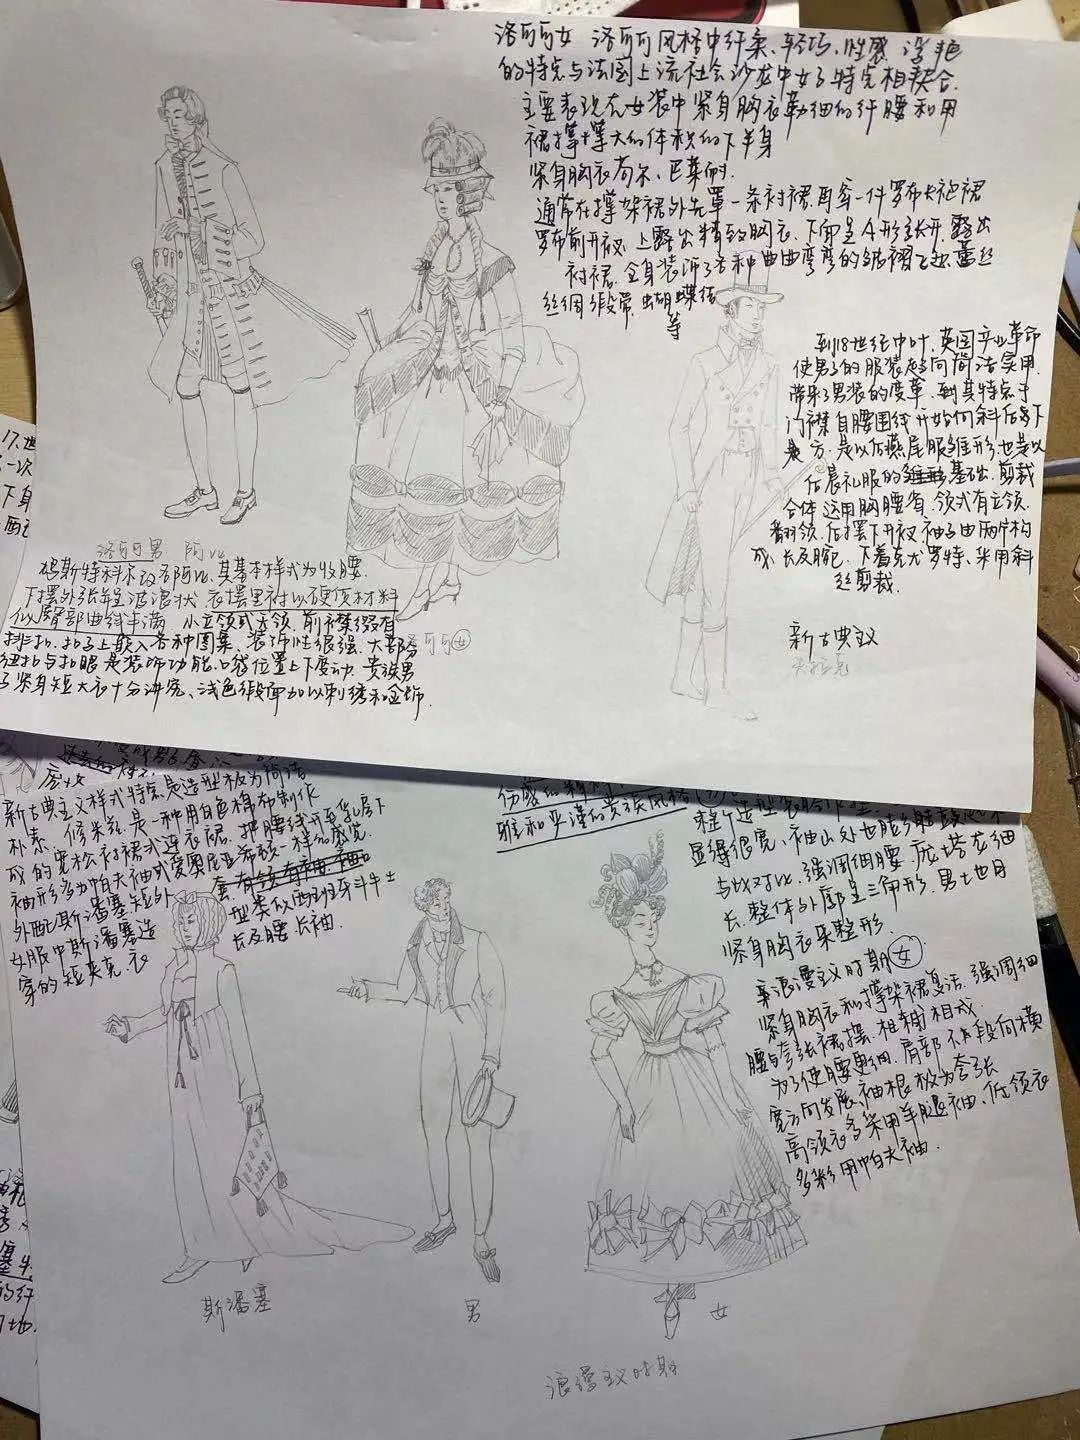 洛可可女 洛可可风格中纤柔、轻巧、性感
的特点与法国上流社会沙龙中女子特点相契合.
主要表现在女装中紧身胸衣勒细的纤腰和用
裙撑撑大的体积的下半身
紧身胸衣苟尔、巴莱耐.
通常在撑架裙外先罩一条衬裙.再穿一件罗布大袍裙
罗布前开衩.上露出精致胸衣、下面呈A形张开.露出
衬裙.全身装饰了各种曲曲弯弯的皱褶飞边.蕾丝
丝绸缎带.蝴蝶结
等
到18世纪中叶,英国产业革命
使男子的服装趋向简洁实用.
带来了男装的变革.到其特点于
门襟自腰围线开始向斜后
是方.是以后燕尾服雏形也是以
后晨礼服的基础.剪裁
合体 运用胸腰省.领式有立领.
翻领.后摆下开衩.袖子由两片构
成.长及腕.下着克尤罗特、采用斜
丝剪裁.
新古典主义
洛可可男 阿比
究斯特科尔改名阿比.其基本样式为收腰.
下摆外张呈波浪状.衣摆里衬以硬质材料
似臀部曲线丰满.小立领或无领.前襟缀有
排扣.扣子上嵌入各种图案.装饰性很强.大部分
纽扣与扣眼是装饰功能.口袋位置上下变动.贵族男
子紧身短大衣十分讲究、浅色缎面加以刺绣和金饰.
可可女
17.世
一次
下身
新古典主义样式特点是造型极为简洁
朴素.修米兹是一种用白色棉布制作
成的宽松衬裙式连衣裙.把腰线开至乳房下
袖形多为帕夫袖或爱奥尼亚希腊一样的感觉
外配斯潘塞短外
套.有领有袖.袖口
女服中斯潘塞造
型类似西班牙斗牛士
穿的短夹克.衣
长及腰 长袖.
雅和严谨的贵族风格
显得很宽、袖山处也膨
与此对比.强调细腰.庞塔龙细
长.整体外廓呈三角形.男士也用
紧身胸衣来整形.
浪漫主义时期女
紧身胸衣和撑架裙复活.强调细
腰与夸张裙摆.相辅相成.
为了使腰更细.肩部不断向横
宽方向发展.袖根极为夸张
高领衣多采用羊腿袖.低领衣
多彩用帕夫袖.
斯潘塞
男
女
浪漫主义时期